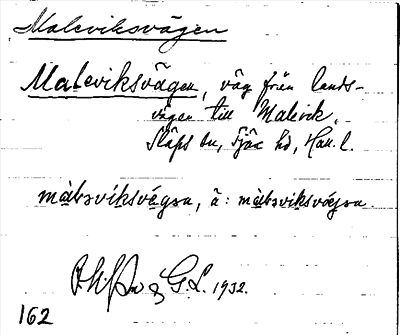 Maleviksvägen
Maleviksvägen, väg från lands-
vägen till Malevik,
Släps sn, Fjäre hd, Hall. l.
màləvíksvę́gən, ä: màləviksvǫ́gən
& G.L. 1932.
162